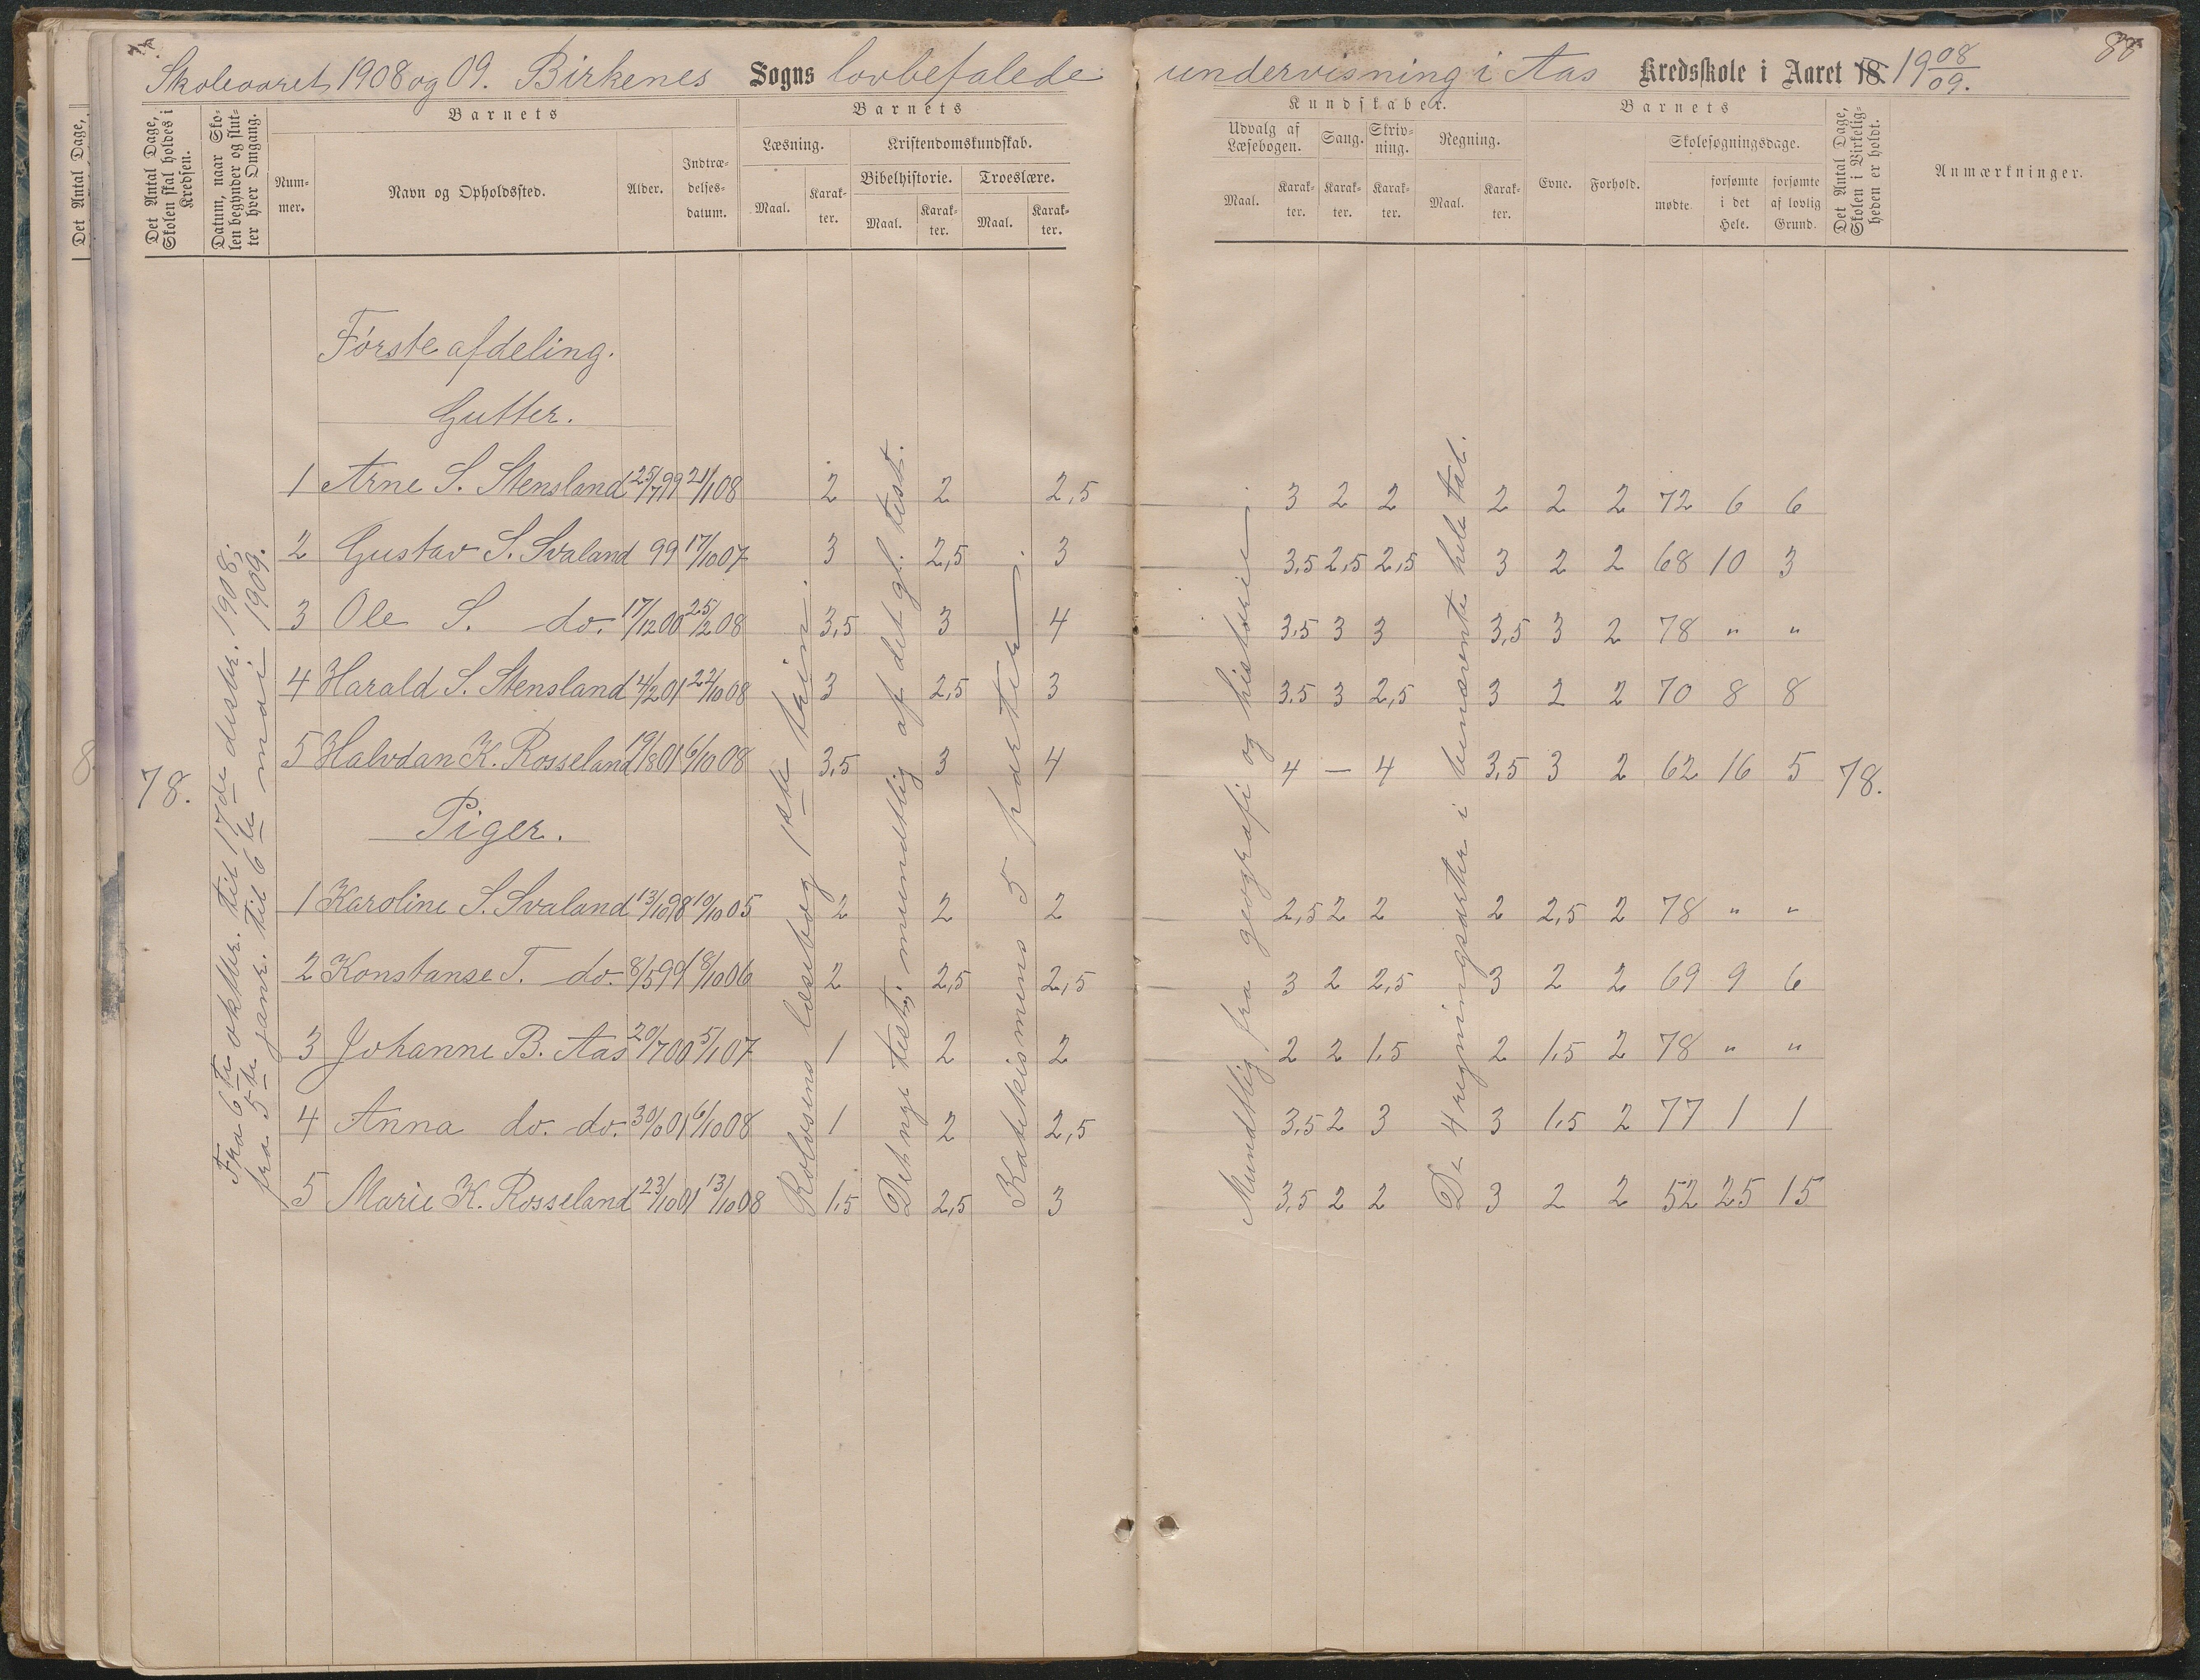 Skoleaaret 1908 og 09. Birkenes Sogns lovbefalede undervisning i Aas Kredsskole i Aaret 18. 19 08/09. 88
Det Antal Dage, Skolen skal holdes i Kredsen.
Datum, naar Skolen begynder og slutter hver Omgang.
Barnets
Nummer.
Navn og Opholdssted.
Alder.
Indtrædelsesdatum.
Barnets
Læsning.
Maal.
Karakter.
Kristendomskundskab.
Bibelhistorie.
Maal.
Karakter.
Troeslære.
Maal.
Karakter.
Kundskaber.
Udvalg af Læsebogen.
Maal.
Karakter.
Sang.
Karakter.
Skrivning.
Karakter.
Regning.
Maal.
Karakter.
Barnets
Evne.
Forhold.
Skolesøgningsdage.
mødte.
forsømte i det Hele.
forsømte af lovlig Grund.
Det Antal Dage, Skolen i Virkeligheden er holdt.
Anmærkninger.
Det Antal Dage,
78.
Fra 6te oktbr. til 17de desbr. 1908.
fra 5te janr. til 6te mai 1909.
Første afdeling.
Gutter.
1 Arne S. Stensland 25/7 99 21/1 08 2 2 2,5 3 2 2 2 2 2 72 6 6
2 Gustav S. Svaland 99 17/10 07 3 2,5 3 3,5 2,5 2,5 3 2 2 68 10 3
3 Ole S. do. 17/12 00 25/2 08 3,5 3 4 3,5 3 3 3,5 3 2 78 " "
4 Harald S. Stensland 4/2 01 22/10 08 3 2,5 3 3,5 3 2,5 3 2 2 70 8 8
5 Halvdan K. Rosseland 19/8 01 6/10 08 3,5 3 4 4 — 4 3,5 3 2 62 16 5 78.
Piger.
1 Karoline S. Svaland 13/10 98 10/10 05 2 2 2 2,5 2 2 2 2,5 2 78 " "
2 Konstanse T. do. 8/5 99 18/10 06 2 2,5 2,5 3 2 2,5 3 2 2 69 9 6
3 Johanne B. Aas 20/7 00 5/1 07 1 2 2 2 2 1,5 2 1,5 2 78 " "
4 Anna do. do. 01 6/10 08 1 2 2,5 3,5 2 3 3 1,5 2 77 1 1
5 Marie K. Rosseland 23/10 01 13/10 08 1,5 2,5 3 3,5 2 2 3 2 2 52 25 15
Rolvsens læsebog 1ste trin.
Det nye test. mundtlig af det gl. test.
Katekismens 5 parter.
Mundtlig fra geografi og historie
De 4 regningsarter i benævnte hele tal.